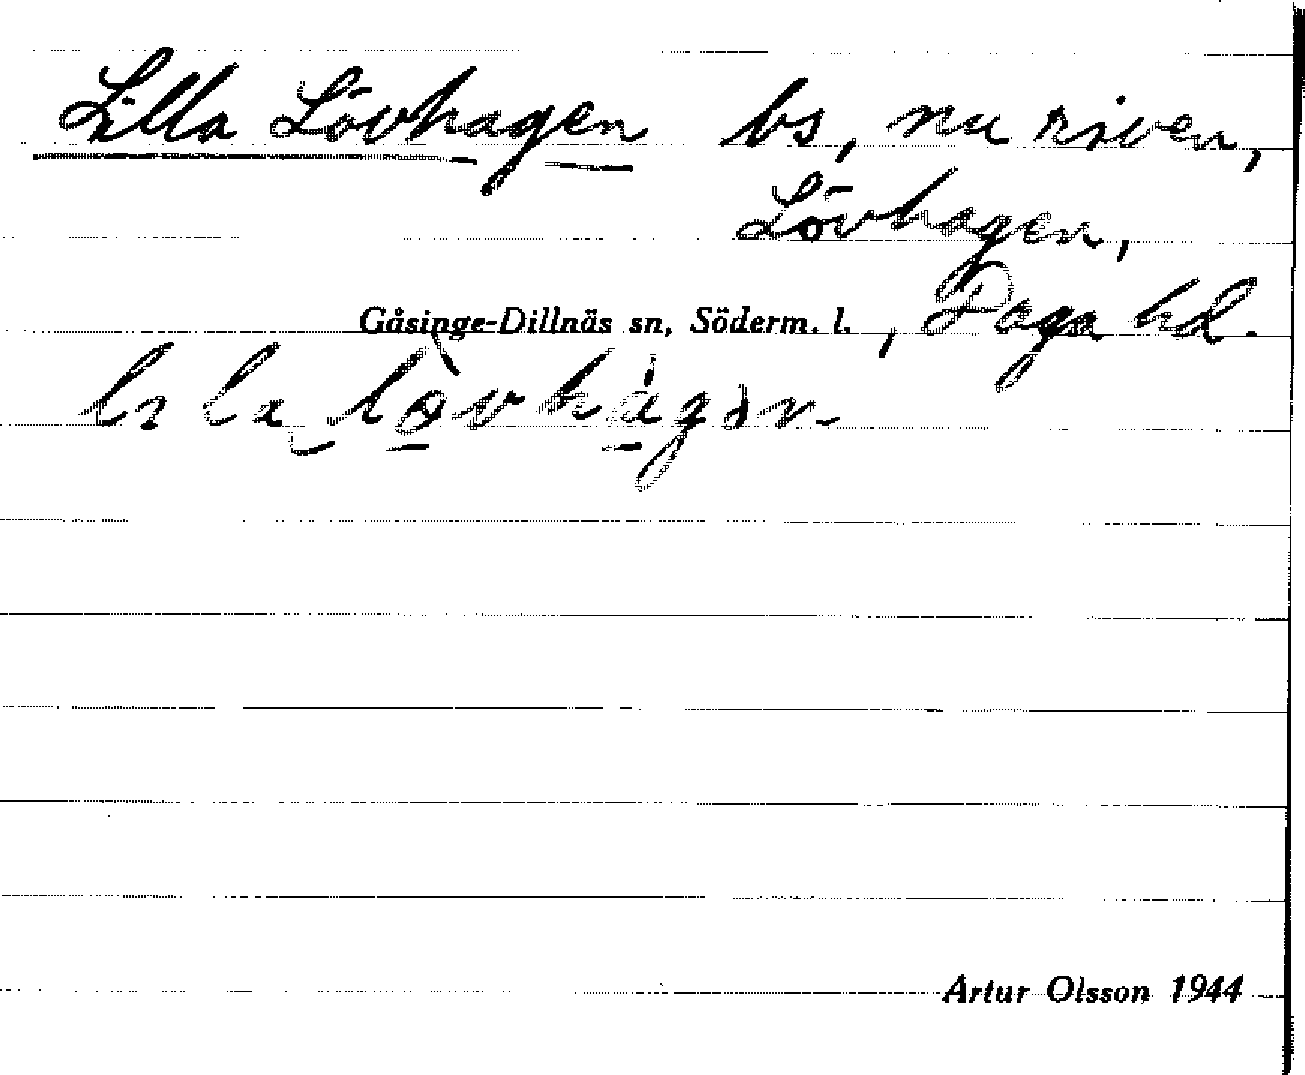 Lilla Lövhagen bs, nu riven,
Lövhagen,
Gåsinge-Dillnäs sn, Söderm. l., Daga hd.
Artur Olsson 1944